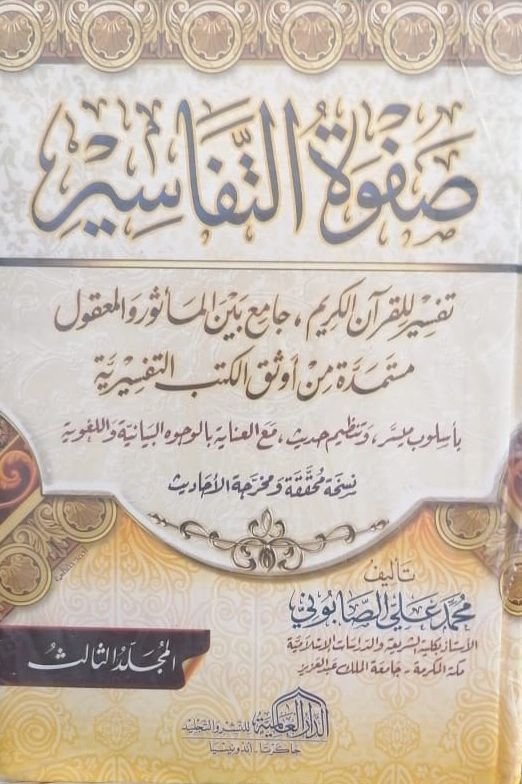 صَفْوَةُ التَّفَاسِيْر
تفسير للقرآن الكريم، جامع بَيْن المأثور والمعقول
مستمدة مِن أوثق الكتب التفسيرية
بأسلوب ميسَّر، وتنظيم حديث، مَع العناية بالوجوه البيانية واللغوية
نسخة محقَّقة ومخرجة الأحاديث
تأليف
محمد علي الصابوني
الأستاذ بكلية الشريعة والدراسات الإسلامية
مكة المكرمة - جامعة الملك عبد العزيز
المجلد الثالث
الدار العالمية للنشر والتجليد
جاكرتا - اندونيسيا